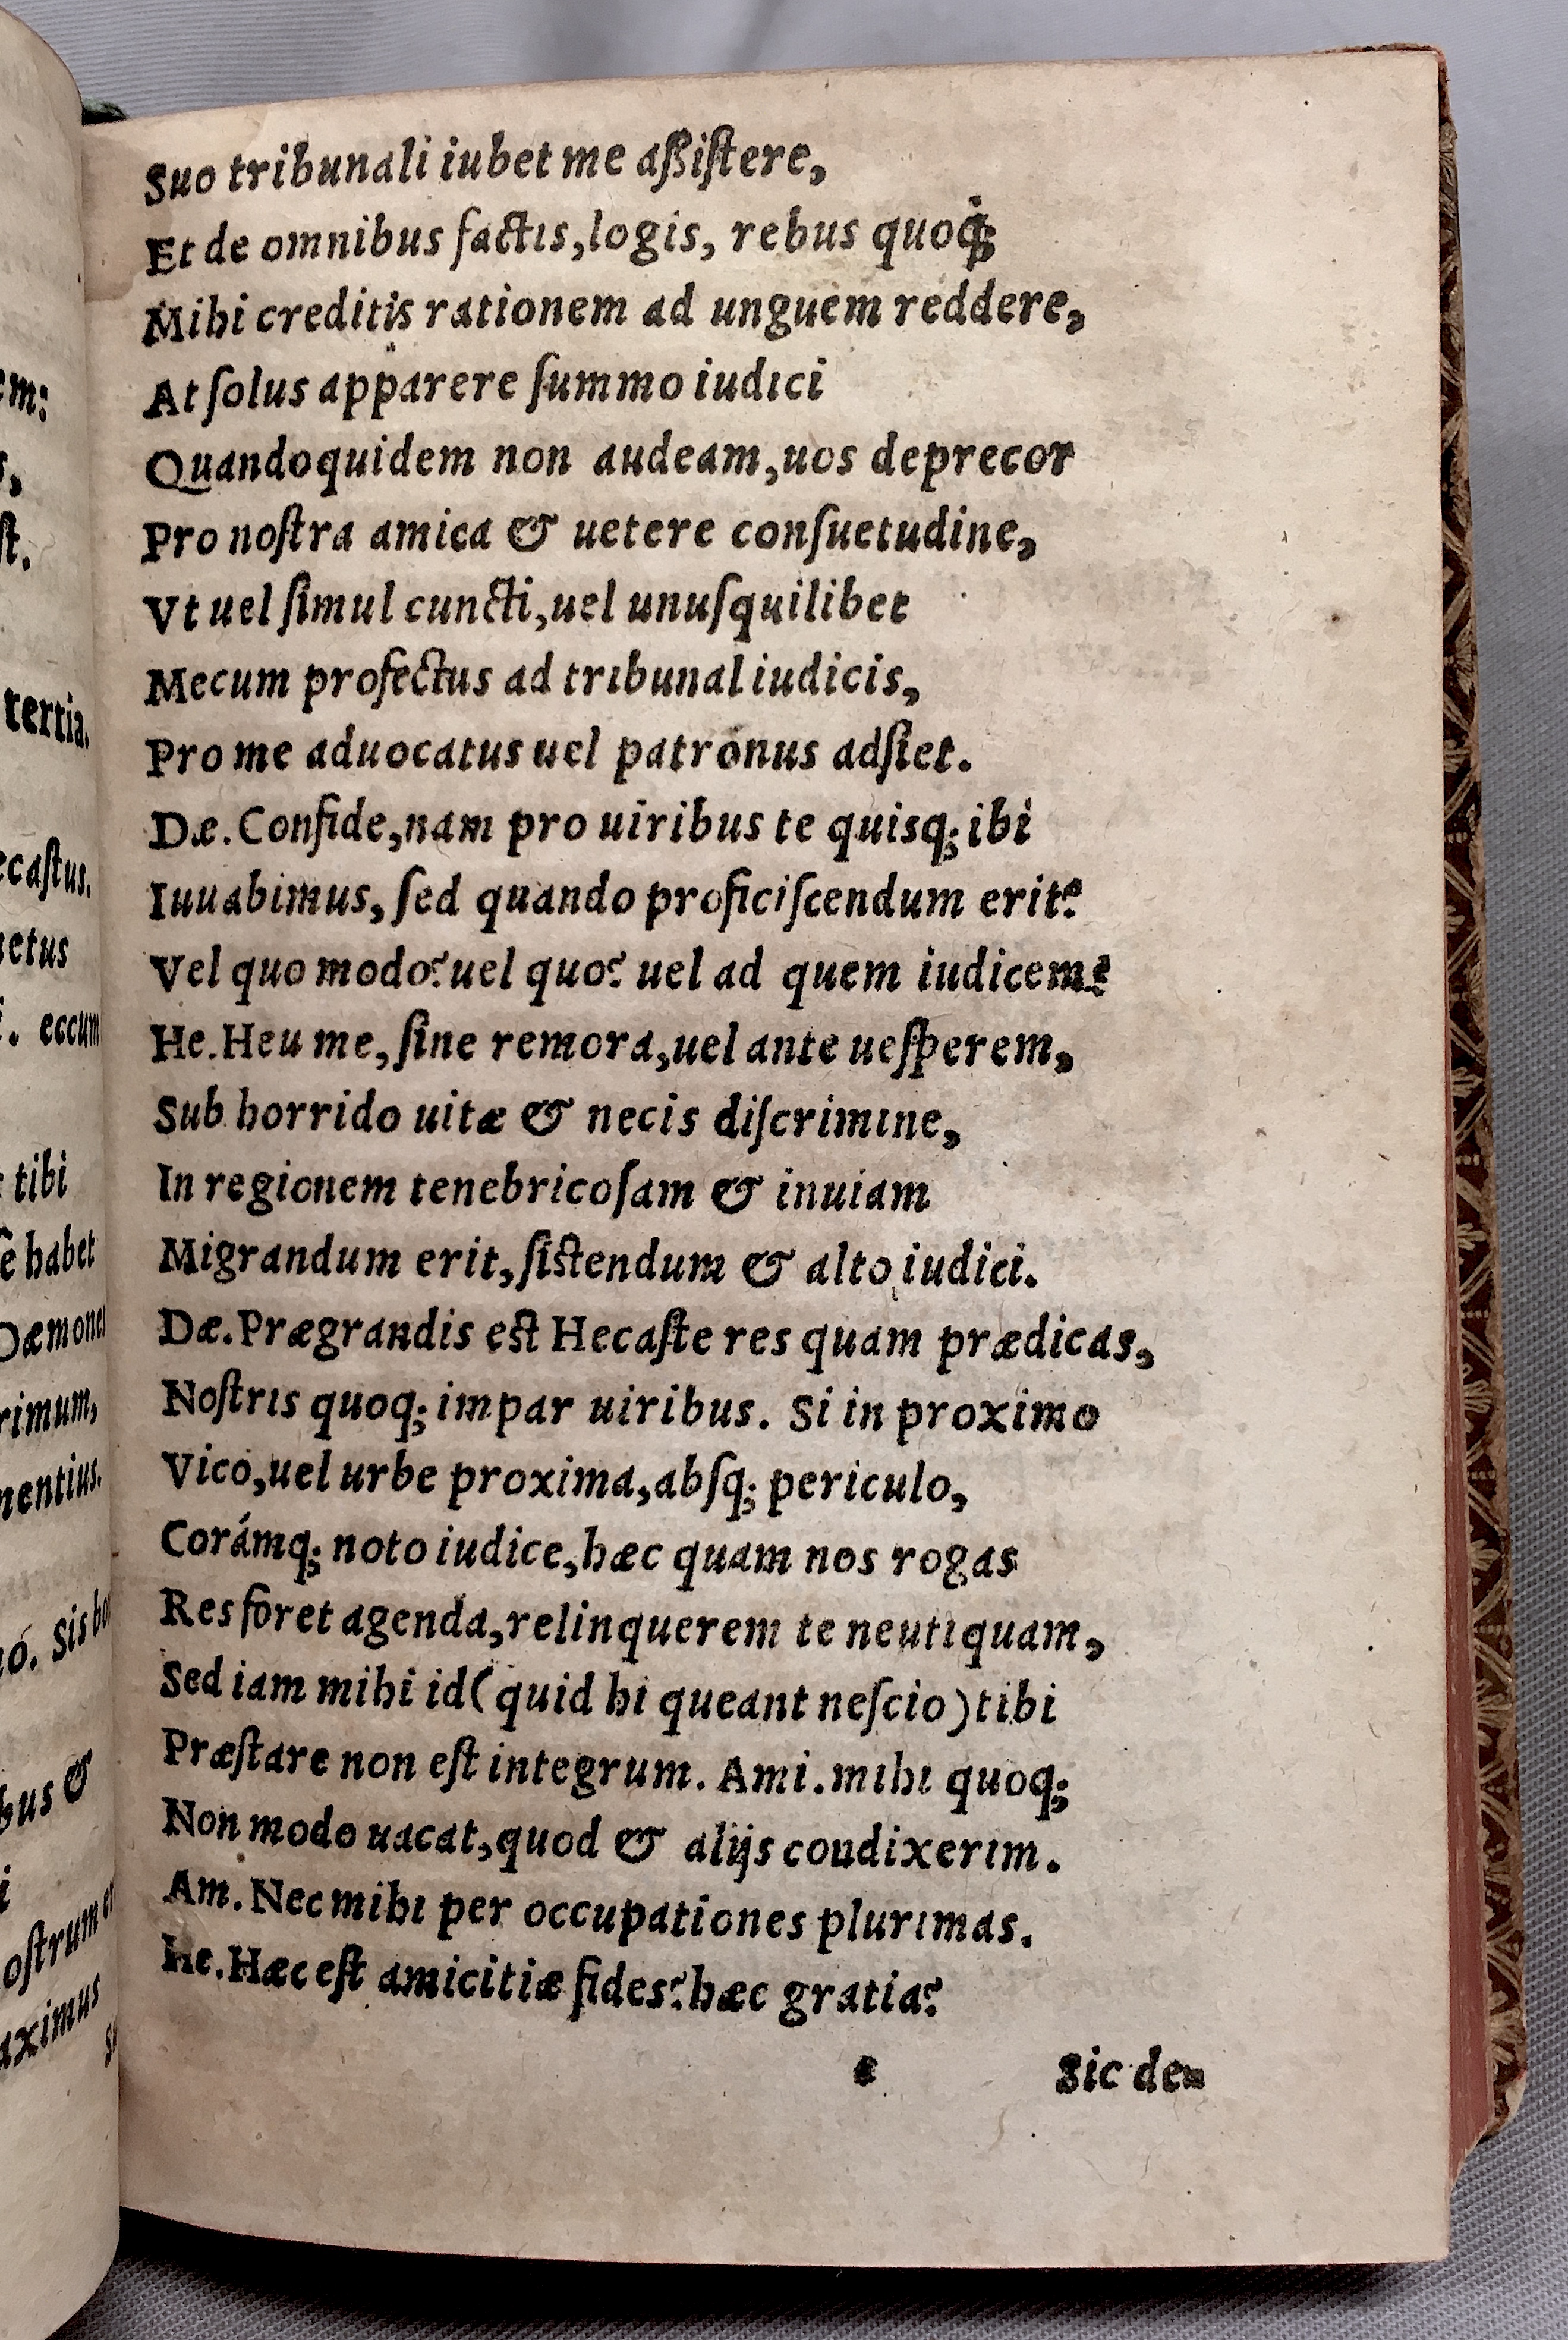 em:
s,
st.
tertia.
ecaſtus.
etus
. eccum
tibi
ē habet
Dæmones
rimum,
mentius.
o. Sis bo
bus &
i
oſtrum
aximus
Suo tribunali iubet me aſsiſtere,
Et de omnibus factis, logis, rebus quoq;
Mihi creditis rationem ad unguem reddere,
At ſolus apparere ſummo iudici
Quandoquidem non audeam, uos deprecor
Pro noſtra amica & uetere conſuetudine,
Vt uel ſimul cuncti, uel unuſquilibet
Mecum profectus ad tribunal iudicis,
Pro me aduocatus uel patronus adſiet.
Dæ. Confide, nam pro uiribus te quisq; ibi
Iuuabimus, ſed quando proficiſcendum erit?
Vel quo modo? uel quo? uel ad quem iudicem?
He. Heu me, ſine remora, uel ante ueſperem,
Sub horrido uitæ & necis diſcrimine,
In regionem tenebricoſam & inuiam
Migrandum erit, ſistendum & alto iudici.
Dæ. Prægrandis est Hecaſte res quam prædicas,
Noſtris quoq; impar uiribus. Si in proximo
Vico, uel urbe proxima, abſq; periculo,
Corámq; noto iudice, hæc quam nos rogas
Res foret agenda, relinquerem te neutiquam,
Sed iam mihi id (quid hi queant neſcio) tibi
Præſtare non eſt integrum. Ami. mihi quoq;
Non modo uacat, quod & alijs condixerim.
Am. Nec mihi per occupationes plurimas.
He. Hæc eſt amicitiæ fides? hæc gratia?
Sic de-